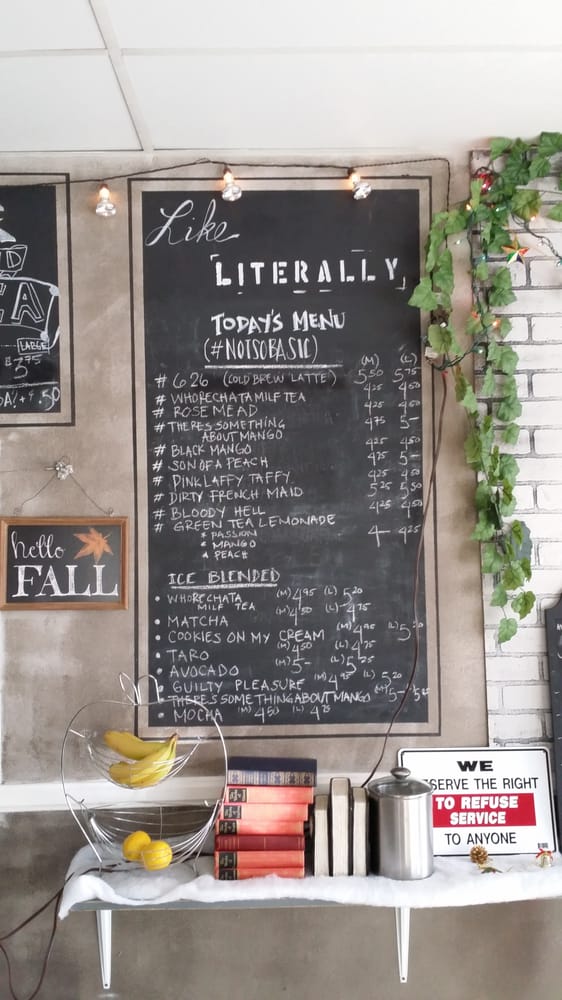 Like
LITERALLY
TODAY'S MENU
(#NOTSOBASIC)
(M) (L)
# 626 (COLD BREW LATTE) 5 50 5 75
# WHORECHATA MILF TEA 4 25 4 50
# ROSEMEAD 4 25 4 50
# THERES SOMETHING 4 75 5-
ABOUT MANGO
# BLACK MANGO 4 25 4 50
# SON OF A PEACH 4 75 5-
# PINK LAFFY TAFFY 4 25 4 50
# DIRTY FRENCH MAID 5 25 5 50
# BLOODY HELL 4 25 4 50
# GREEN TEA LEMONADE 4- 4 25
* PASSION
* MANGO
* PEACH
ICE BLENDED
• WHORECHATA (M) 4 95 (L) 5 20
MILF TEA
• MATCHA (M) 4 50 (L) 4 75
• COOKIES ON MY CREAM (M) 4 95 (L) 5 20
• TARO (M) 4 50 (L) 4 75
• AVOCADO (M) 5- (L) 5 25
• GUILTY PLEASURE (M) 4 95 (L) 5 20
• THERES SOMETHING ABOUT MANGO (M) 5- (L)
• MOCHA (M) 4 50 (L) 4 75
LARGE
$3.75
+ $.50
hello
FALL
WE
RESERVE THE RIGHT
TO REFUSE
SERVICE
TO ANYONE